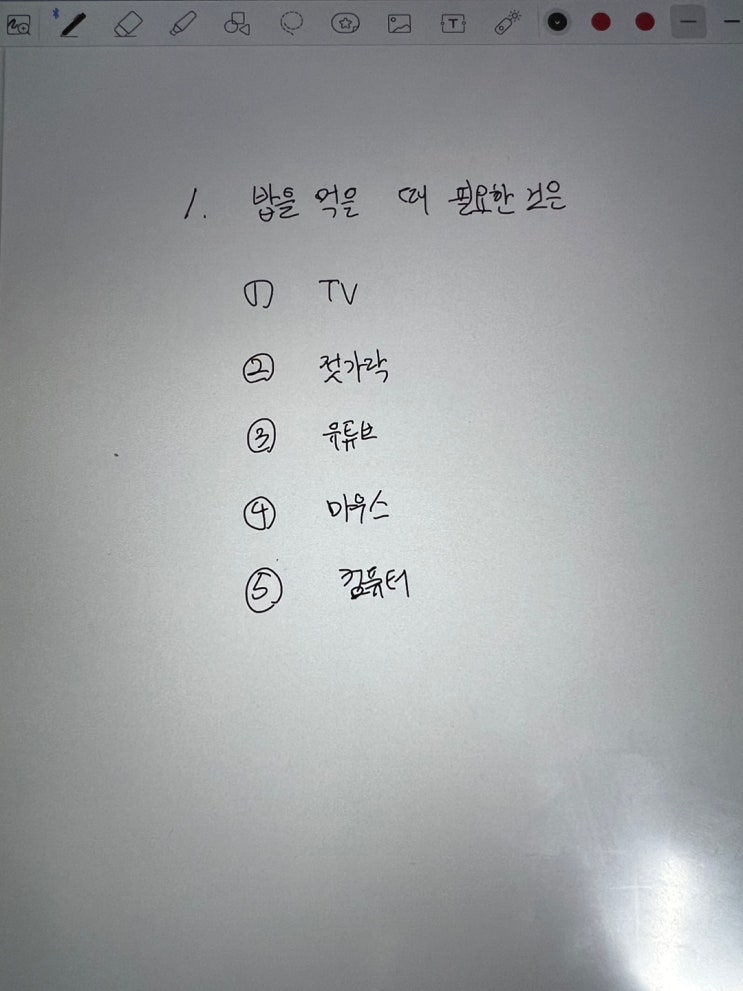 1. 밥을 먹을 때 필요한 것은
① TV
② 젓가락
③ 유튜브
④ 마우스
⑤ 컴퓨터